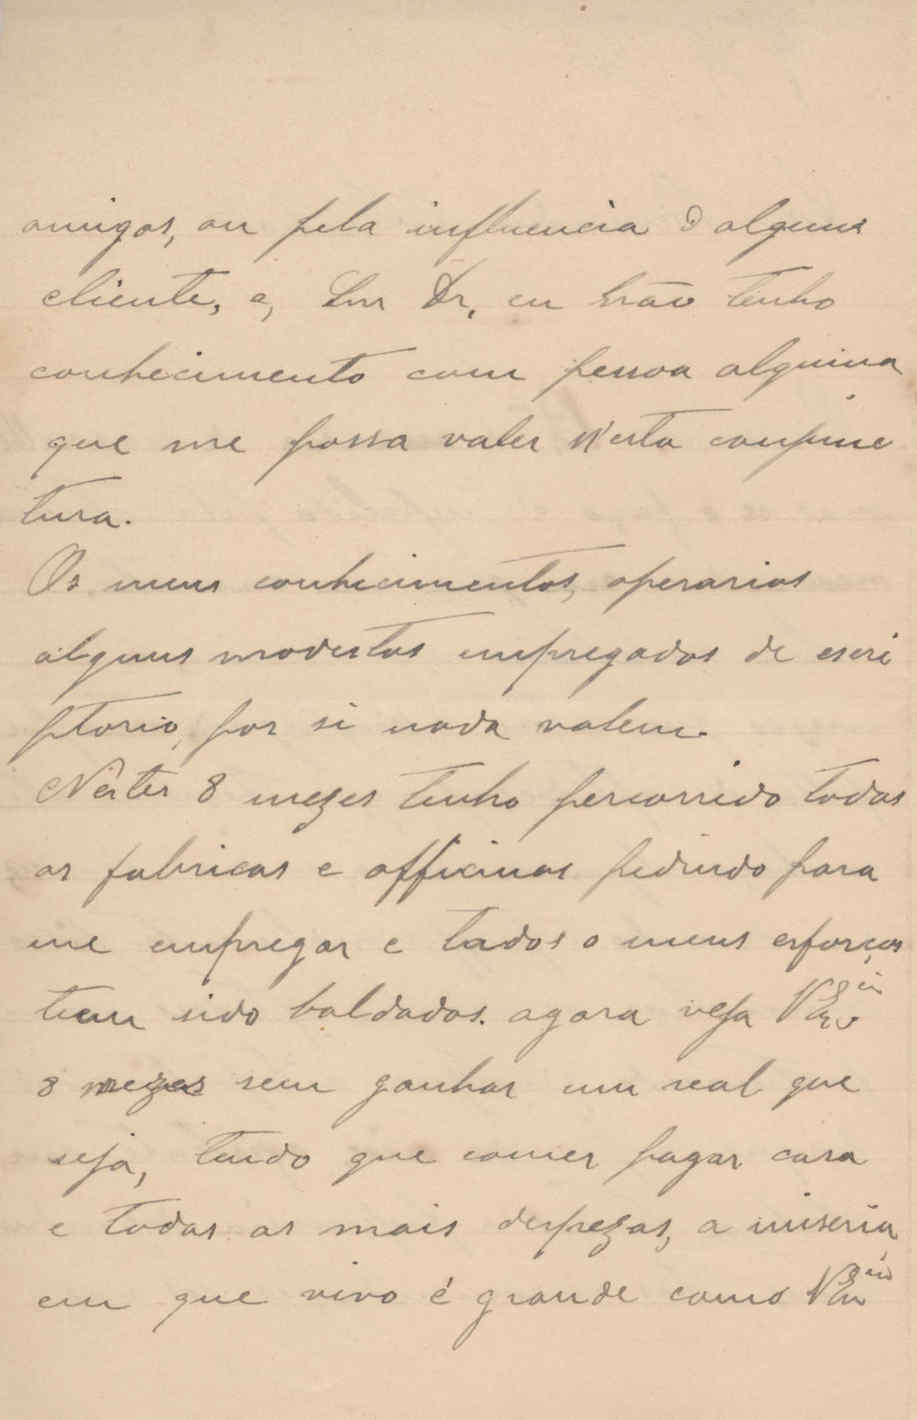 amigos, ou pela influencia d'algum
cliente, e, Snr Dr, eu não tenho
conhecimento com pessoa alguma
que me possa valer n'esta conjunc
tura.
Os meus conhecimentos, operarios
alguns modestos empregados de escri
ptorio, por si nada valem.
N'estes 8 mezes tenho percorrido todas
as fabricas e officinas pedindo para
me empregar e todos o meus esforços
tem sido baldados. agora veja V Exᶜⁱᵃ
8 mezes sem ganhar um real que
seja, tendo que comer pagar casa
e todas as mais despezas, a miseria
em que vivo é grande como V Exᶜⁱᵃ